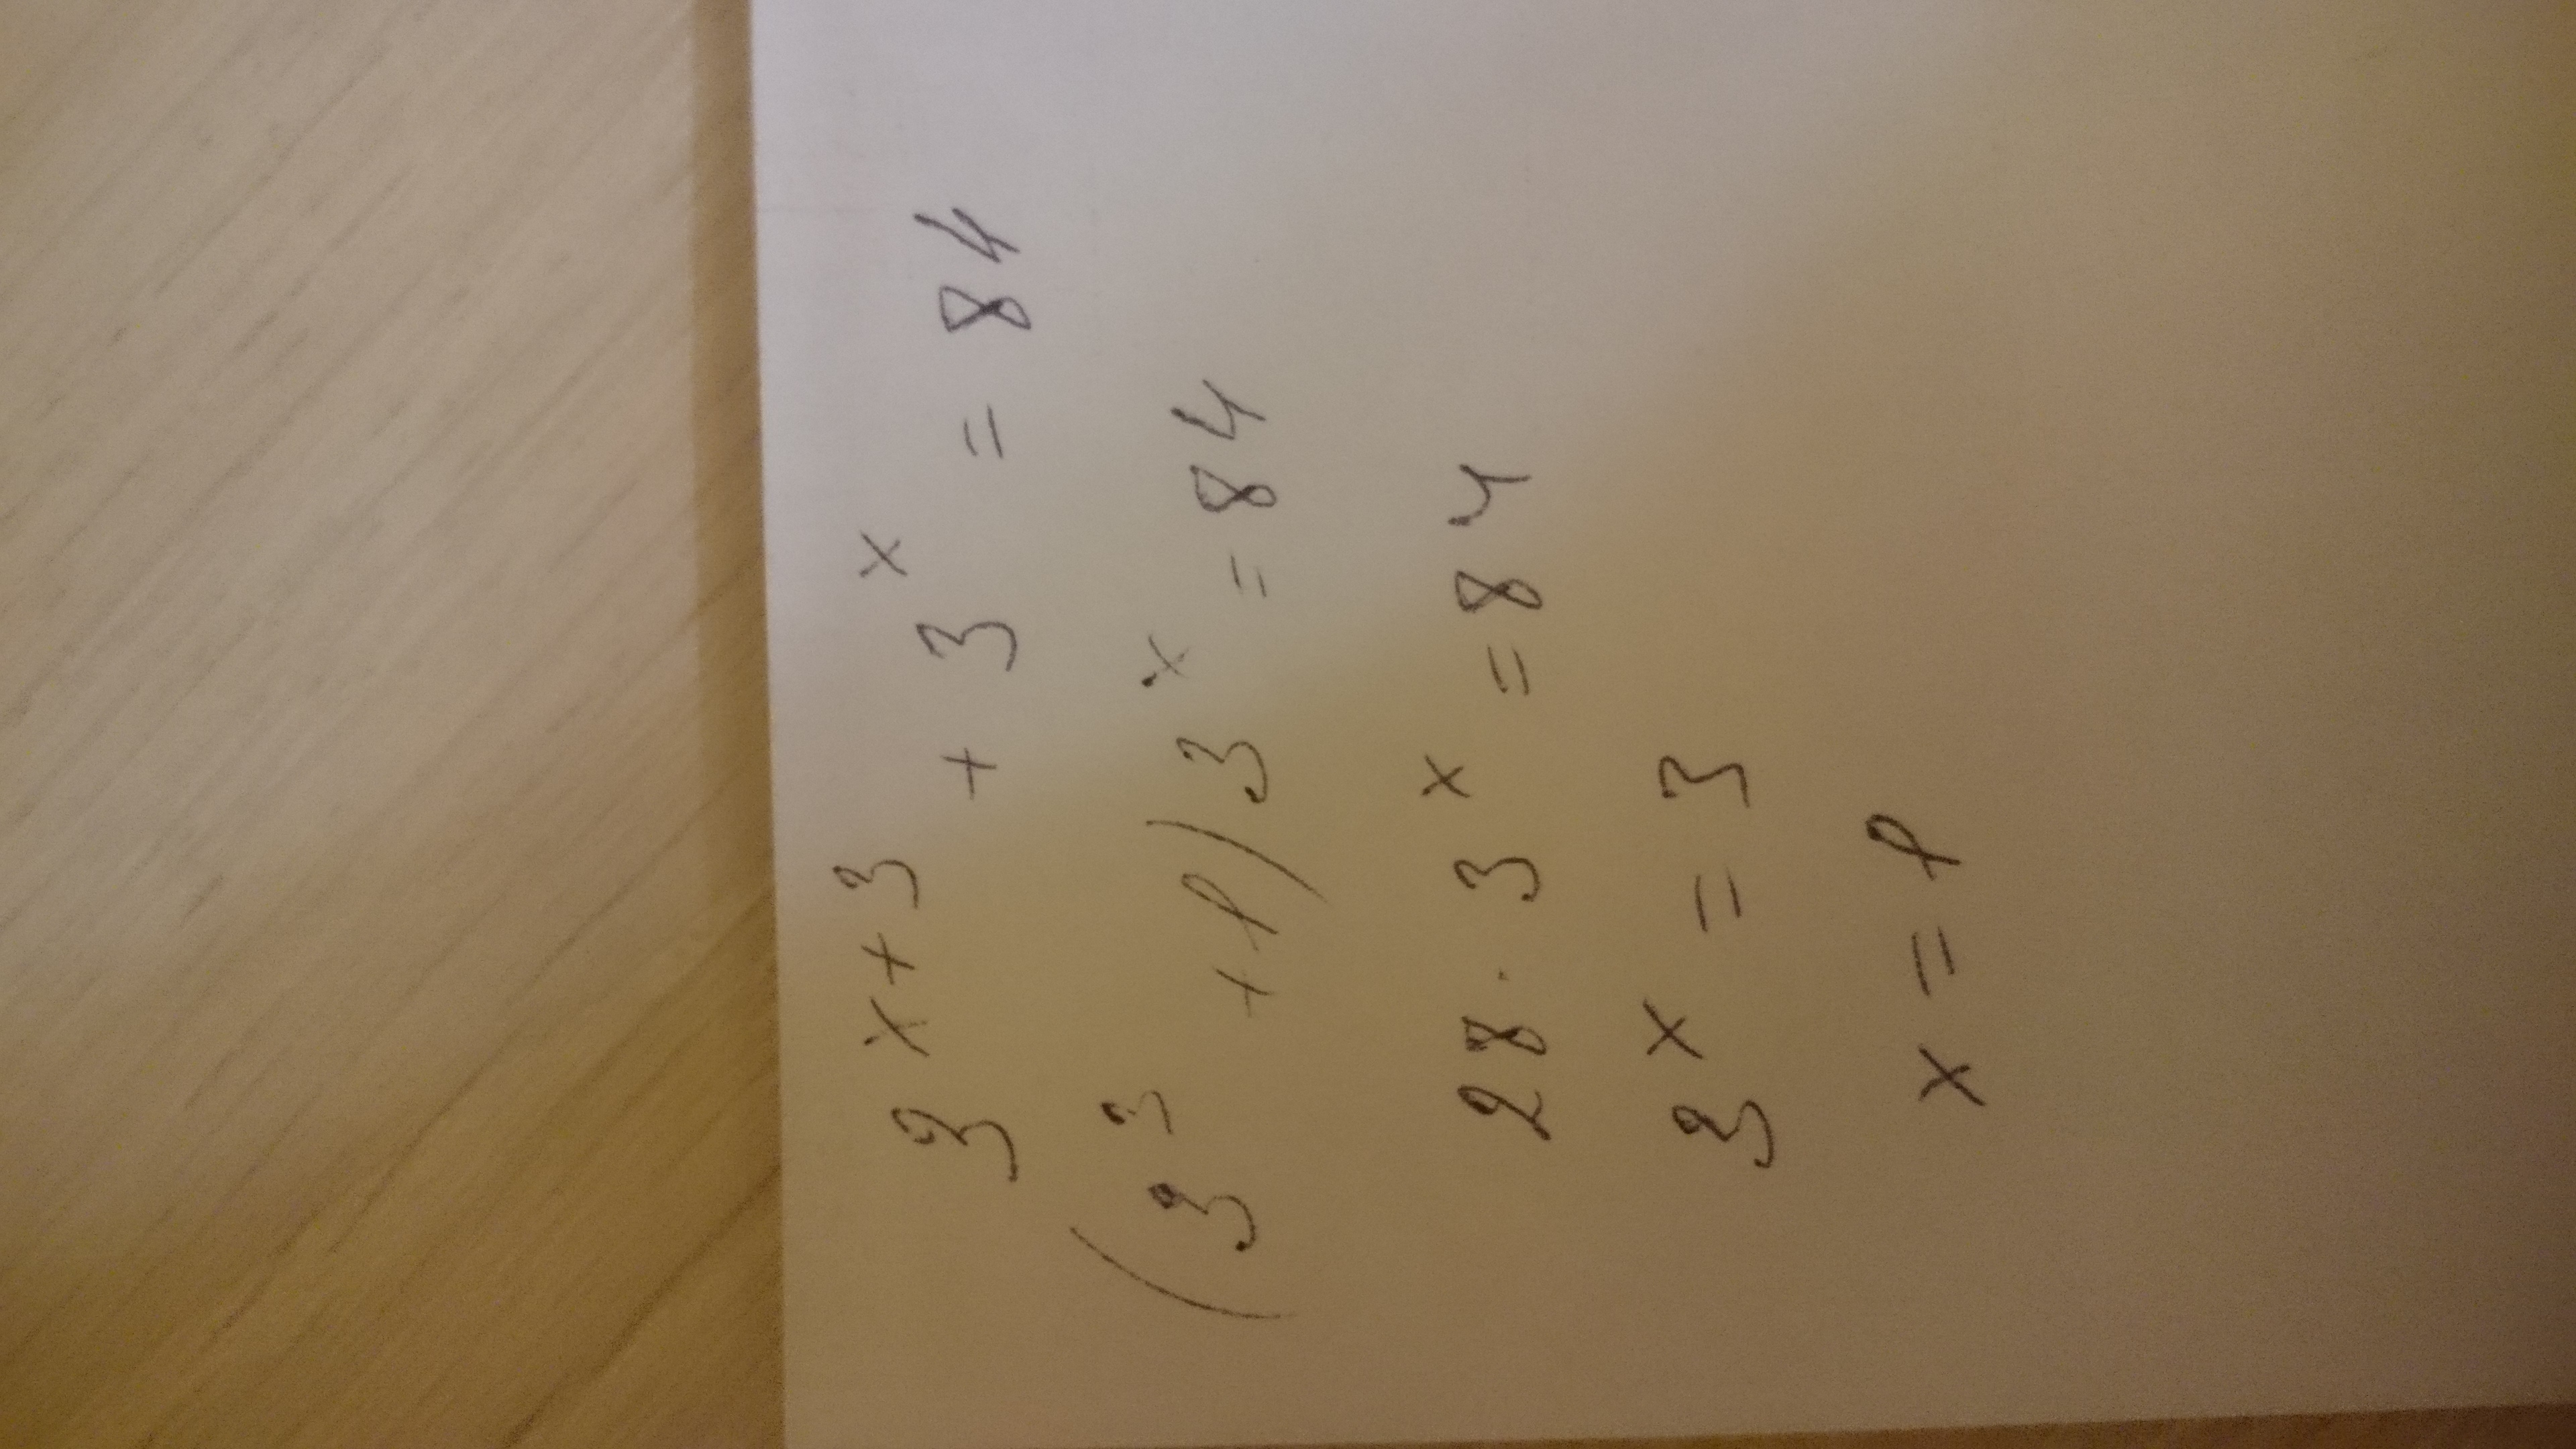 3^{x+3} + 3^x = 84
(3^3 + 1) 3^x = 84
28 · 3^x = 84
3^x = 3
x = 1